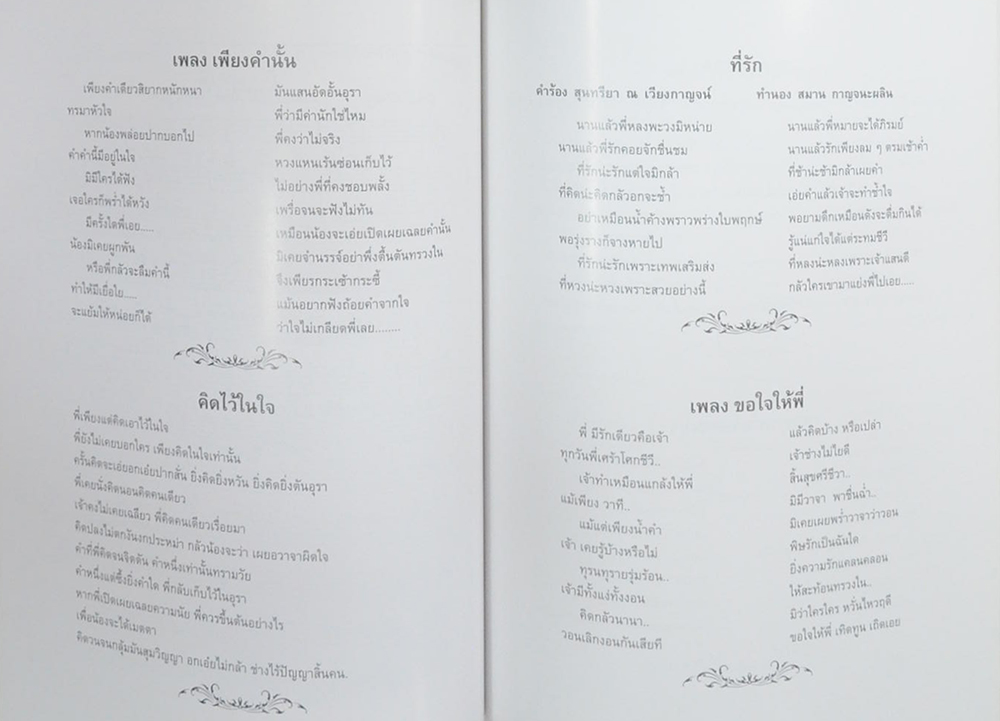 เพลง เพียงคำนั้น
เพียงคำเดียวสิยากหนักหนา มันแสนอัดอั้นอุรา
ทรมาหัวใจ พี่ว่ามีค่านักใช่ไหม
หากน้องพล่อยปากบอกไป พี่คงว่าไม่จริง
คำคำนี้มีอยู่ในใจ หวงแหนเร้นซ่อนเก็บไว้
มิมีใครได้ฟัง ไม่อย่างพี่ที่คงชอบพลั้ง
เจอใครก็พร่ำได้หวัง เพรื่อจนจะฟังไม่ทัน
มีครั้งใดพี่เอย..... เหมือนน้องจะเอ่ยเปิดเผยเฉลยคำนั้น
น้องมิเคยผูกพัน มิเคยจำนรรจ์อย่าพึ่งตื้นตันทรวงใน
หรือพี่กลัวจะลืมคำนี้ จึงเพียรกระเซ้ากระซี้
ทำให้มีเยื่อใย..... แม้นอยากฟังถ้อยคำจากใจ
จะแย้มให้หน่อยก็ได้ ว่าใจไม่เกลียดพี่เลย........
คิดไว้ในใจ
พี่เพียงแต่คิดเอาไว้ในใจ
พี่ยังไม่เคยบอกใคร เพียงคิดในใจเท่านั้น
ครั้นคิดจะเอ่ยอกเอ๋ยปากสั่น ยิ่งคิดยิ่งหวัน ยิ่งคิดยิ่งตันอุรา
พี่เคยนั่งคิดนอนคิดคนเดียว
เจ้าคงไม่เคยเฉลียว พี่คิดคนเดียวเรื่อยมา
คิดปลงไม่ตกงันงกประหม่า กลัวน้องจะว่า เผยอวาจาผิดใจ
คำที่พี่คิดจนจิตตัน คำหนึ่งเท่านั้นทรามวัย
คำหนึ่งแต่ซึ้งยิ่งคำใด พี่กลับเก็บไว้ในอุรา
หากพี่เปิดเผยเฉลยความนัย พี่ควรขึ้นต้นอย่างไร
เพื่อน้องจะได้เมตตา
คิดวนจนกลุ้มมันสุมวิญญา อกเอ๋ยไม่กล้า ช่างไร้ปัญญาสิ้นคน.
ที่รัก
คำร้อง สุนทรียา ณ เวียงกาญจน์ ทำนอง สมาน กาญจนะผลิน
นานแล้วพี่หลงพะวงมิหน่าย นานแล้วพี่หมายจะได้ภิรมย์
นานแล้วพี่รักคอยจักชื่นชม นานแล้วรักเพียงลม ๆ ตรมเช้าค่ำ
ที่รักน่ะรักแต่ใจมิกล้า ที่ช้าน่ะช้ามิกล้าเผยคำ
ที่คิดน่ะคิดกลัวอกจะช้ำ เอ่ยคำแล้วเจ้าจะทำช้ำใจ
อย่าเหมือนน้ำค้างพราวพร่างใบพฤกษ์ พอยามดึกเหมือนดังจะดื่มกินได้
พอรุ่งรางก็จางหายไป รู้แน่แก่ใจได้แต่ระทมชีวี
ที่รักน่ะรักเพราะเทพเสริมส่ง ที่หลงน่ะหลงเพราะเจ้าแสนดี
ที่หวงน่ะหวงเพราะสวยอย่างนี้ กลัวใครเขามาแย่งพี่ไปเอย.....
เพลง ขอใจให้พี่
พี่ มีรักเดียวคือเจ้า แล้วคิดบ้าง หรือเปล่า
ทุกวันพี่เศร้าโศกชีวี.. เจ้าช่างไม่ใยดี
เจ้าทำเหมือนแกล้งให้พี่ สิ้นสุขศรีชีวา..
แม้เพียง วาที.. มิมีวาจา พาชื่นฉ่ำ..
แม้แต่เพียงน้ำคำ มิเคยเผยพร่ำวาจาว่าวอน
เจ้า เคยรู้บ้างหรือไม่ พิษรักเป็นฉันใด
ทุรนทุรายรุ่มร้อน.. ยิ่งความรักแคลนคลอน
เจ้ามีทั้งแง่ทั้งงอน ให้สะท้อนทรวงใน..
คิดกลัวนานา.. มิว่าใครใคร หวั่นไหวฤดี
วอนเลิกงอนกันเสียที ขอใจให้พี่ เทิดทูน เถิดเอย